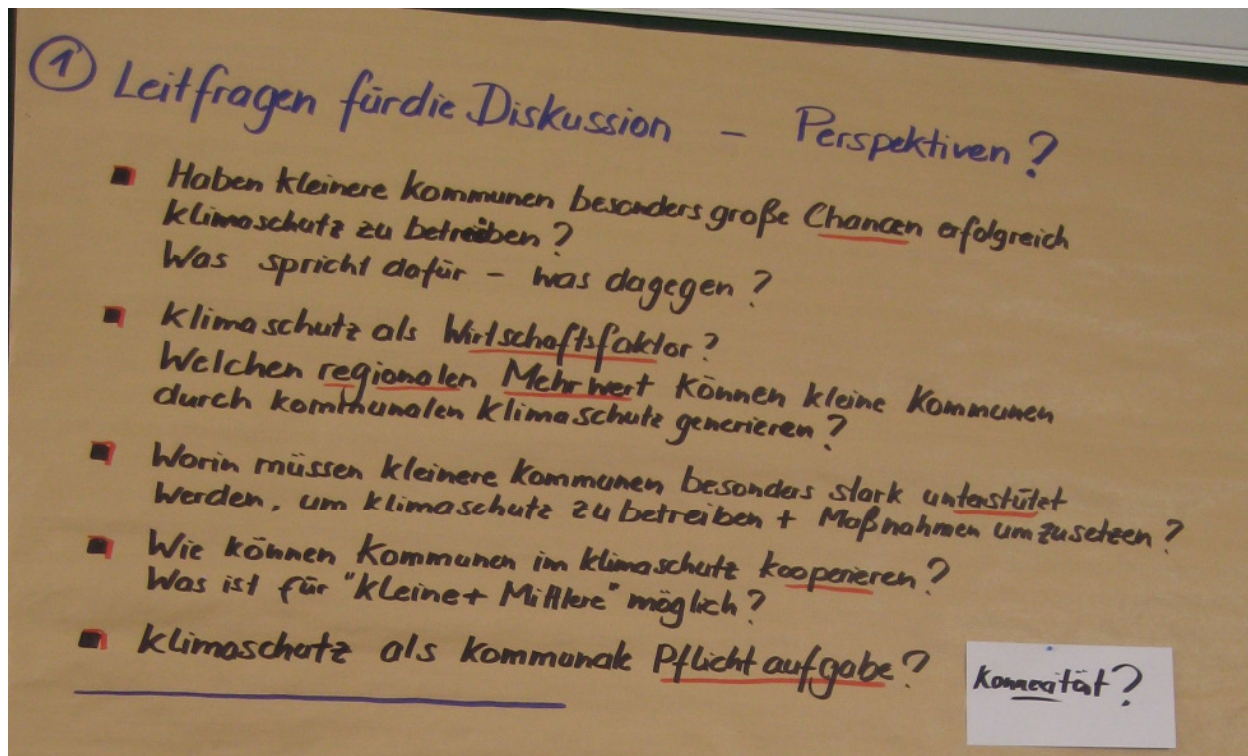 1 Leitfragen für die Diskussion – Perspektiven?
Haben kleinere Kommunen besonders große Chancen erfolgreich
Klimaschutz zu betreiben?
Was spricht dafür – was dagegen?
Klimaschutz als Wirtschaftsfaktor?
Welchen regionalen Mehrwert können kleine Kommunen
durch kommunalen Klimaschutz generieren?
Worin müssen kleinere Kommunen besonders stark unterstützt
werden, um Klimaschutz zu betreiben + Maßnahmen umzusetzen?
Wie können Kommunen im Klimaschutz kooperieren?
Was ist für "Kleine + Mittlere" möglich?
Klimaschutz als kommunale Pflichtaufgabe?
Konnexität?